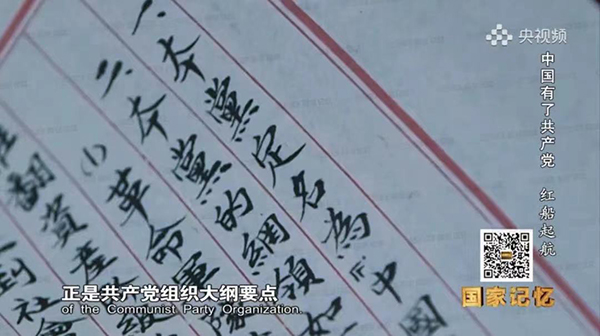 央视频
中国有了共产党 红船起航
一、本黨定名為『中國
二、本黨的綱領如
(1)革命軍
翻資產
到社會
正是共产党组织大纲要点
of the Communist Party Organization.
国家记忆